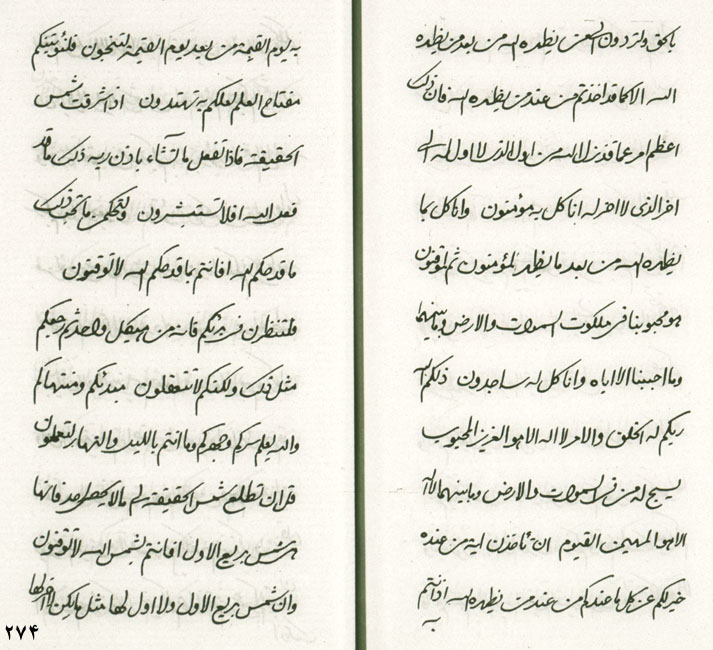 بالحق ولتردون الى من يظهره الله من بعد من يظهره
الله الا كما قد اخذتم من عند من يظهره الله فان ذلك
اعظم امر عما قد نزل الله من اول الذى لا اول له الى
اخر الذى لا اخر له انا كل به مؤمنون وانا كل بما
يظهره الله من بعد ما يظهر لمؤمنون ثم لموقنون
هو محبوبنا فى ملكوت السموات والارض وما بينهما
وما احببنا الا اياه وانا كل له ساجدون ذلكم الله
ربكم له الخلق والامر لا اله الا هو العزيز المحبوب
يسبح له من فى السموات والارض وما بينهما لا اله
الا هو المهيمن القيوم ان تاخذن اية من عنده
خير لكم عن كل ما عندكم من عند من يظهره الله اذ انتم
به
به يوم القيمة من بعد يوم القيمة لتنجون فلنؤتينكم
مفتاح العلم لعلكم به تهتدون اذا اشرقت شمس
الحقيقة فاذا تفعل ما تشاء باذن ربه ذلك ما قد
فعد الله افلا تستبشرون ولتحكمن ما تحب ذلك
ما قد حكم الله افانتم بما قد حكم الله لا توقنون
فلتنظرن فى بدئكم فانه من هيكل واحد ثم رجعكم
مثل ذلك ولكنكم لا تتعقلون مبدئكم ومنتهاكم
والله يعلم سركم وجهركم وما انتم بالليل والنهار لتعملون
قل ان تطلع شمس الحقيقة الى ما لا يحصى احد فانها
هى شمس بديع الاول افانتم بشمس الله لا توقنون
وان شمس بديع الاول ولا اول لها مثل ما لم يكن لا اخر لها
۲۷۴